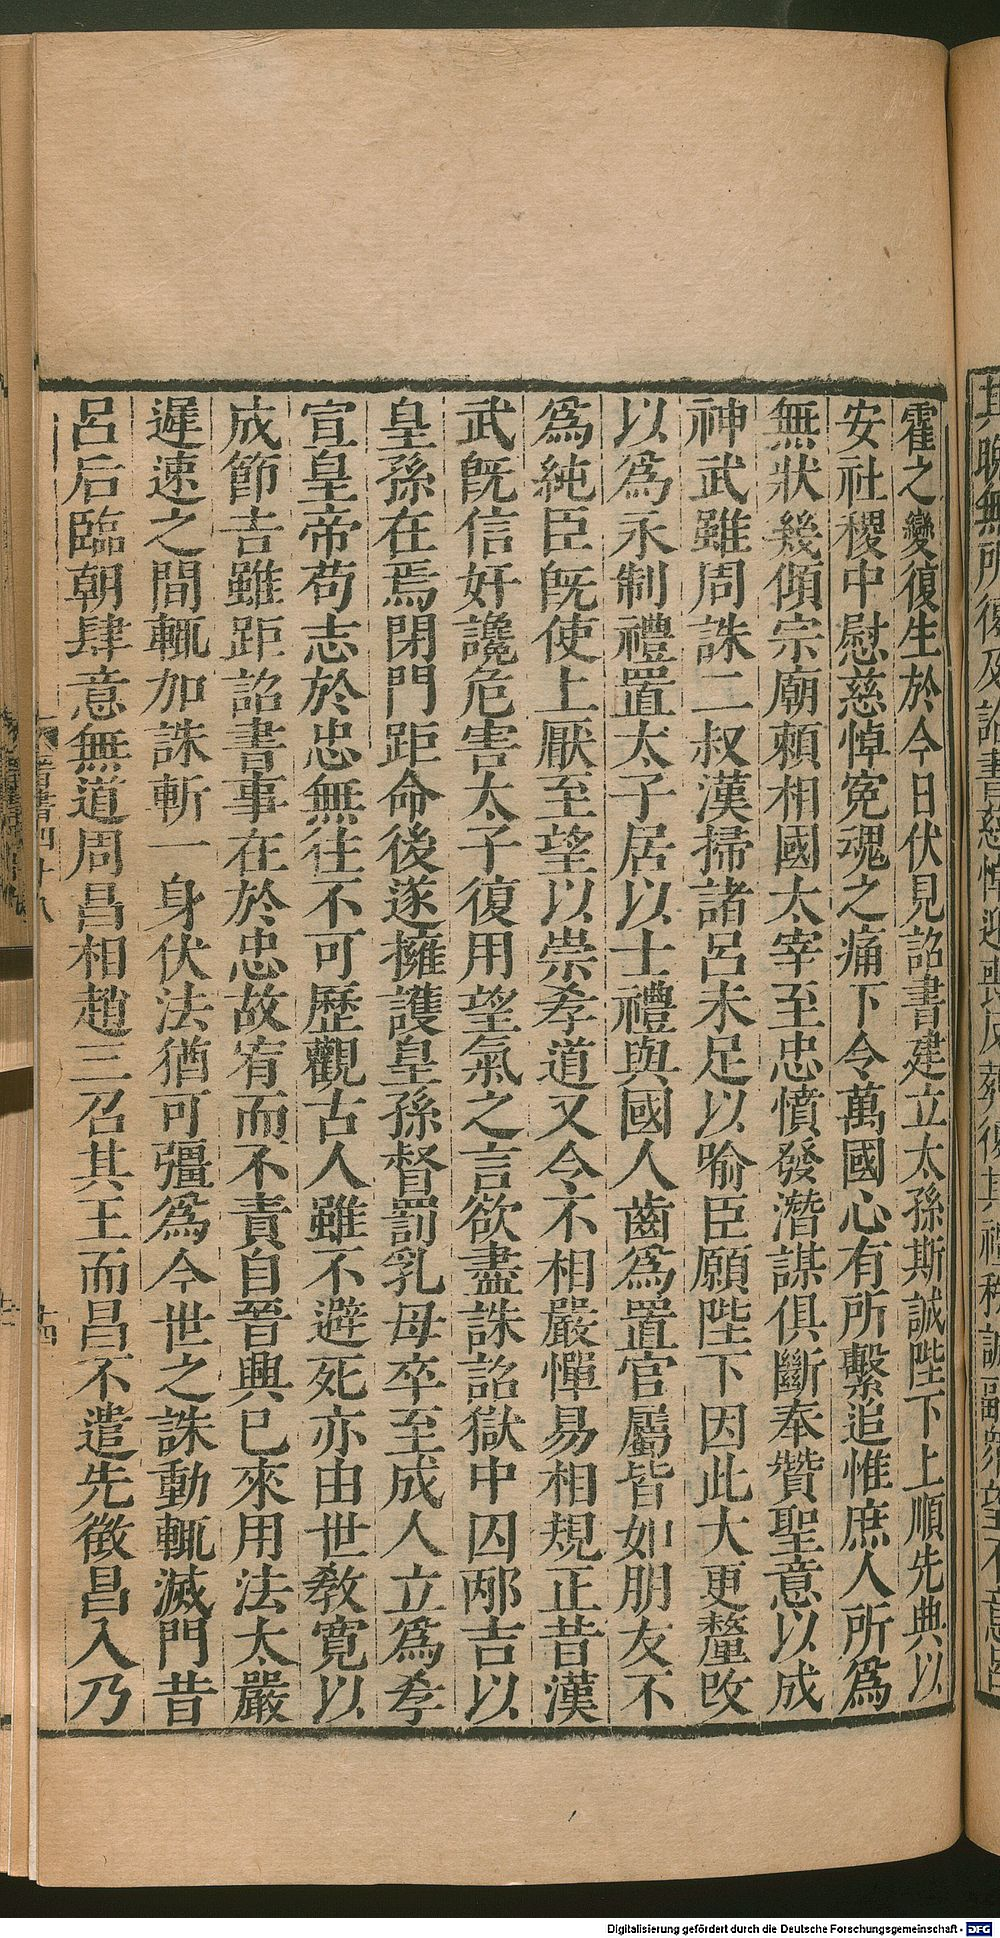 霍之變復生於今日伏見詔書建立太孫斯誠陛下上順先典以
安社稷中慰慈悼寃魂之痛下令萬國心有所繫追惟庶人所爲
無狀幾傾宗廟賴相國太宰至忠憤發潛謀俱斷奉贊聖意以成
神武雖周誅二叔漢掃諸呂未足以喻臣願陛下因此大更釐改
以爲永制禮置太子居以士禮與國人齒爲置官屬皆如朋友不
爲純臣旣使上厭至望以崇孝道又令不相嚴憚易相規正昔漢
武旣信奸讒危害太子復用望氣之言欲盡誅詔獄中囚邴吉以
皇孫在焉閉門距命後遂擁護皇孫督罰乳母卒至成人立爲孝
宣皇帝苟志於忠無往不可歷觀古人雖不避死亦由世敎寛以
成節吉雖距詔書事在於忠故宥而不責自晉興已來用法太嚴
遲速之間輒加誅斬一身伏法猶可彊爲今世之誅動輒滅門昔
呂后臨朝肆意無道周昌相趙三召其王而昌不遣先徵昌入乃
晉書四十八
十四
Digitalisierung gefördert durch die Deutsche Forschungsgemeinschaft - DFG